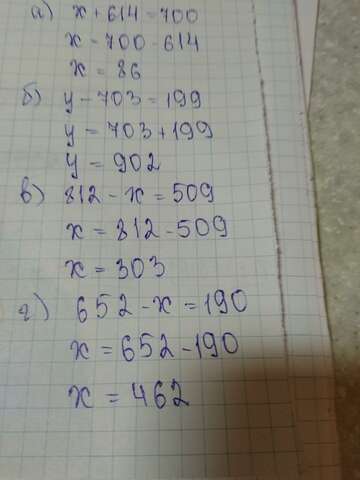 а) x + 614 = 700
x = 700 - 614
x = 86
б) y - 703 = 199
y = 703 + 199
y = 902
в) 812 - x = 509
x = 812 - 509
x = 303
г) 652 - x = 190
x = 652 - 190
x = 462